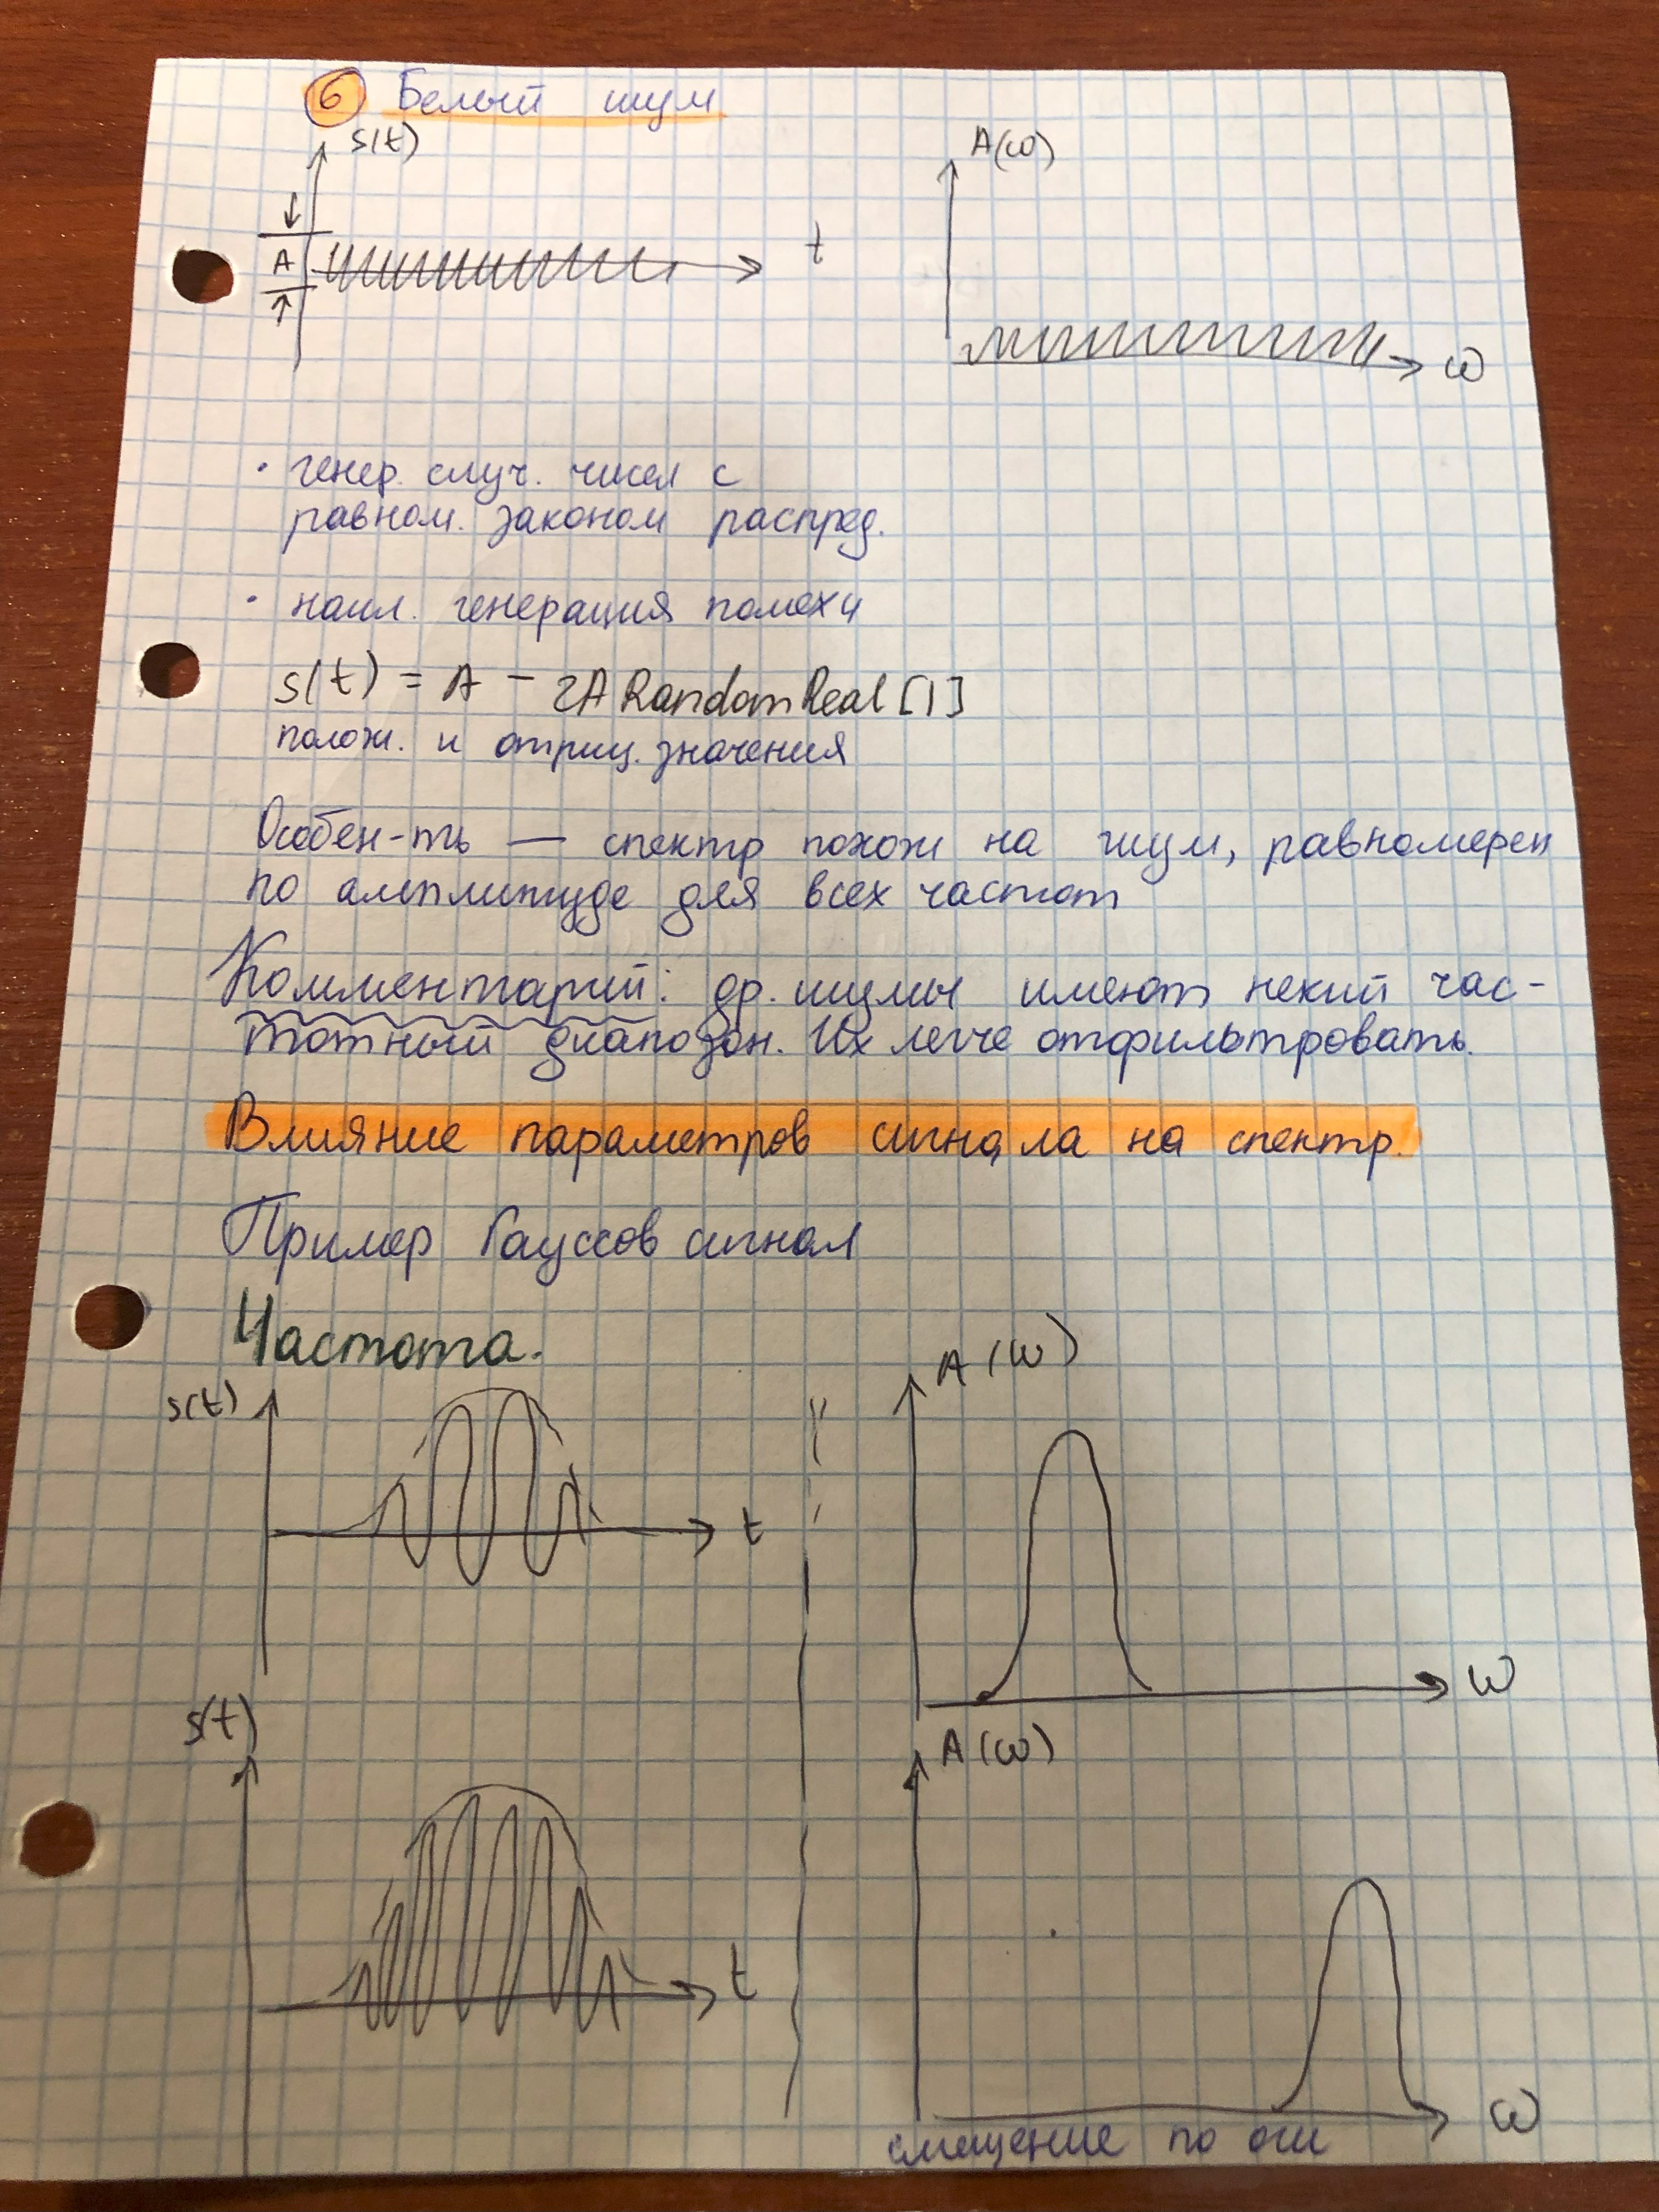 6 Белый шум
s(t)
A
t
A(ω)
ω
· генер. случ. чисел с
равном. законом распред.
· наил. генерация помехи
s(t) = A - 2A RandomReal[1]
полож. и отриц. значения
Особен-ть — спектр похож на шум, равномерен
по амплитуде для всех частот
Комментарий: др. шумы имеют некий час-
тотный диапозон. Их легче отфильтровать.
Влияние параметров сигнала на спектр.
Пример Гауссов сигнал
Частота.
s(t)
t
A(ω)
ω
s(t)
t
A(ω)
ω
смещение по оси